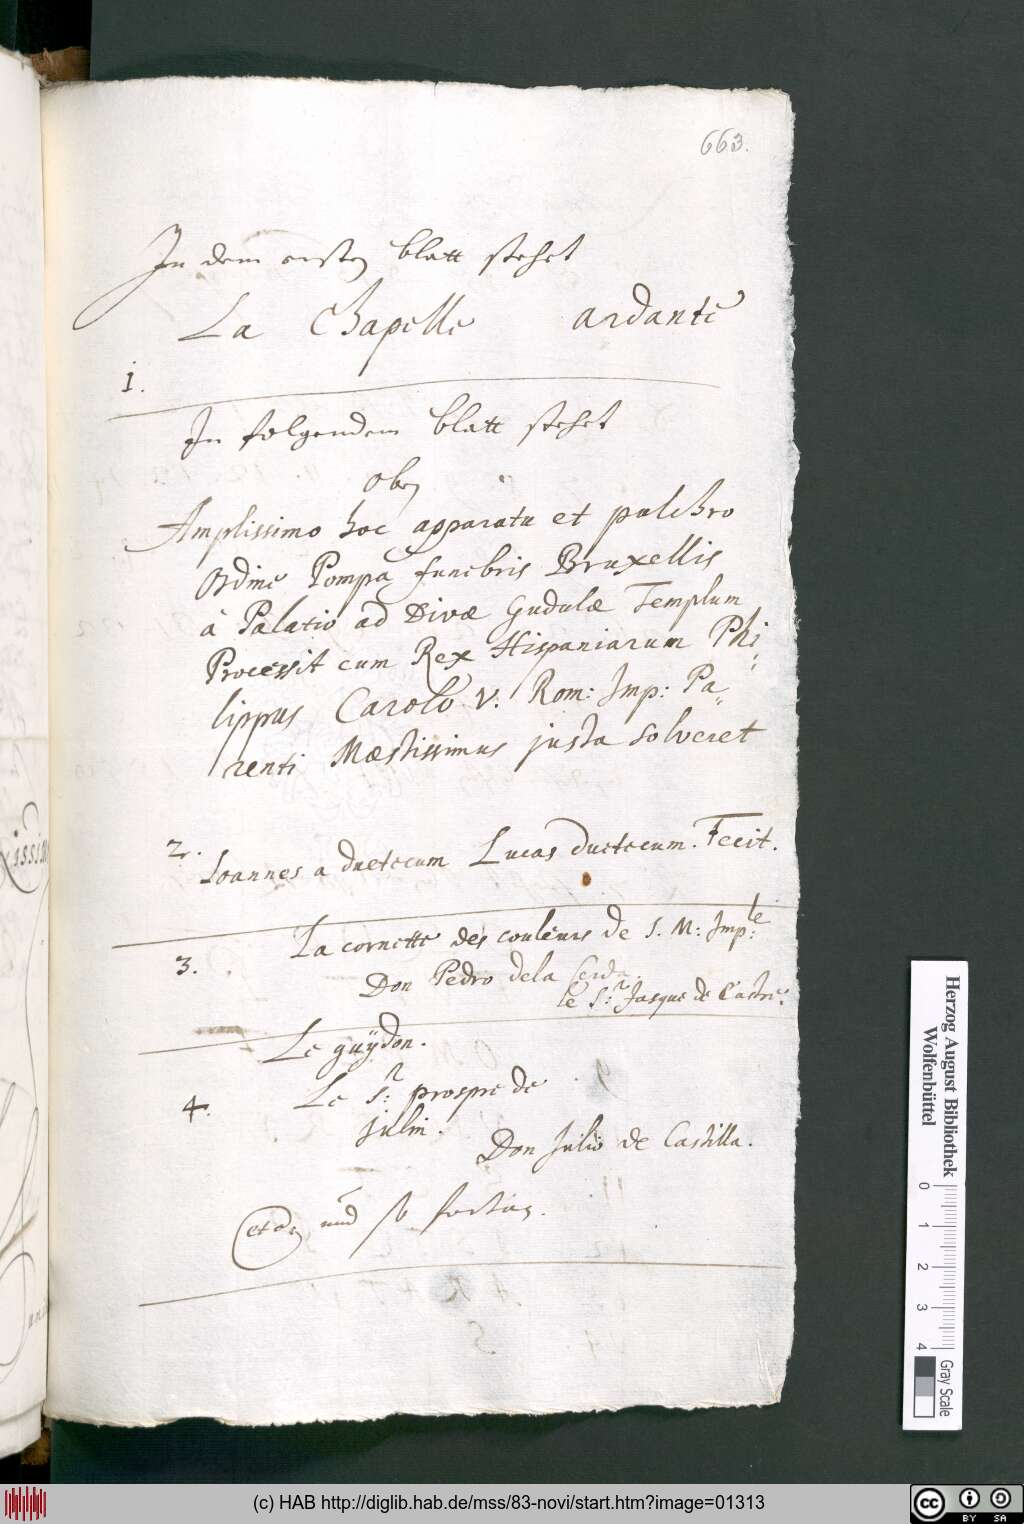 663.
In dem ersten blatt stehet
La Chapelle ardante
1.
In folgendem blatt stehet
oben
Amplissimo hoc apparatu et pulchro
Ordine Pompa funebris Bruxellis
à Palatio ad Divæ Gudulæ Templum
Processit cum Rex Hispaniarum Phi-
lippus Carolo V. Rom: Imp: Pa-
renti Mæstissimus justa solveret
2. Ioannes a Duetecum Lucas Duetecum. Fecit.
La cornette des couleurs de S. M: Imp:le
3.
Don Pedro dela Cerda.
le S:r Jasque de Castre.
Le guÿdon.
4. Le S:r prospre de
julin.
Don Julio de Castilla.
und so fortan.
Herzog August Bibliothek
Wolfenbüttel
0 1 2 3 4
Gray Scale
(c) HAB http://diglib.hab.de/mss/83-novi/start.htm?image=01313
cc BY SA